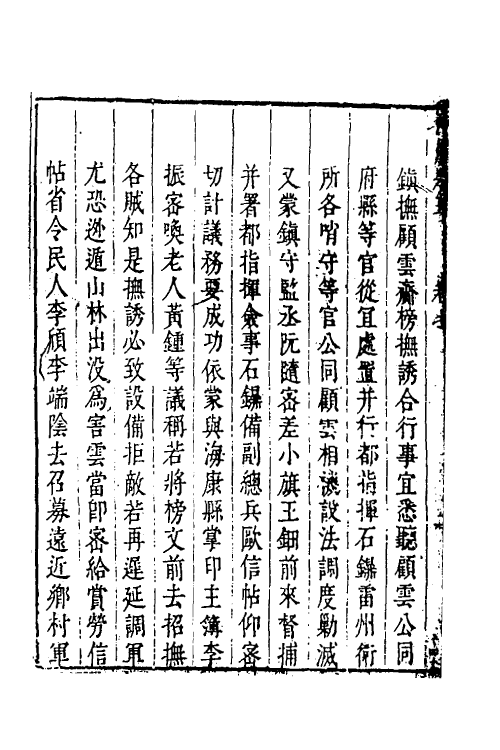 鎮撫顧雲齎榜撫誘合行事宜悉聽顧雲公同
府縣等官從宜處置并行都指揮石鏻雷州衛
所各哨守等官公同顧雲相機設法調度勦滅
又蒙鎮守監丞阮隨密差小旗王鈿前來督捕
并署都指揮僉事石鏻備副總兵歐信帖仰密
切計議務要成功依蒙與海康縣掌印主簿李
振密喚老人黃鍾等議稱若將榜文前去招撫
各賊知是撫誘必致設備拒敵若再遲延調軍
尤恐遯遁山林出没為害雲當卽密給賞勞信
帖省令民人李頎李端陰去召募遠近鄉村軍